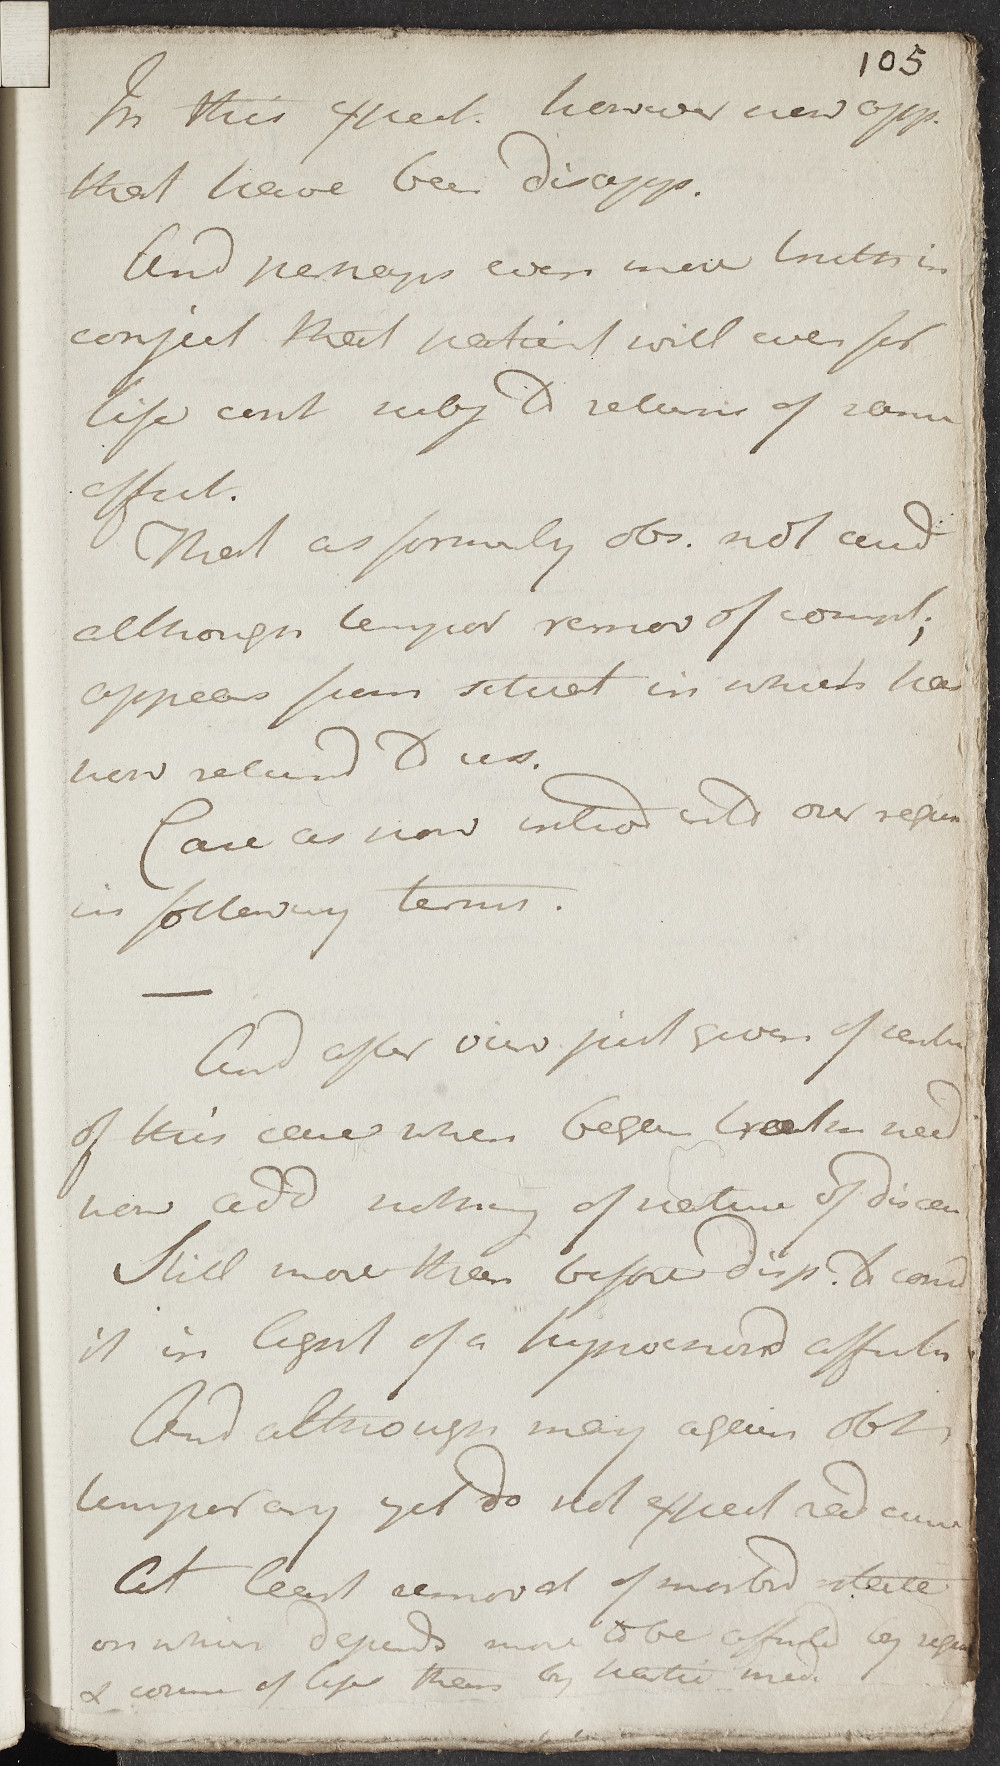 105
In this expect. however now app.
that have been disapp.
And perhaps even more truth in
conject that patient will ever for
life cont subj to returns of same
affect.
That as formerly obs. not cured
although tempor remov of compl;
appears from situat in which has
now returnd to us.
Case as now introd into our regis
in following terms.
And after view just given of
of this case when began treatm need
now add nothing of nature of diseas
Still more than before disp. to consid
it in light of a hypochond affectn
And although may again obtn
temporary yet do not expect rad cure
At least removal of morbid state
on which depends more to be affectd by regim
& course of life than by med